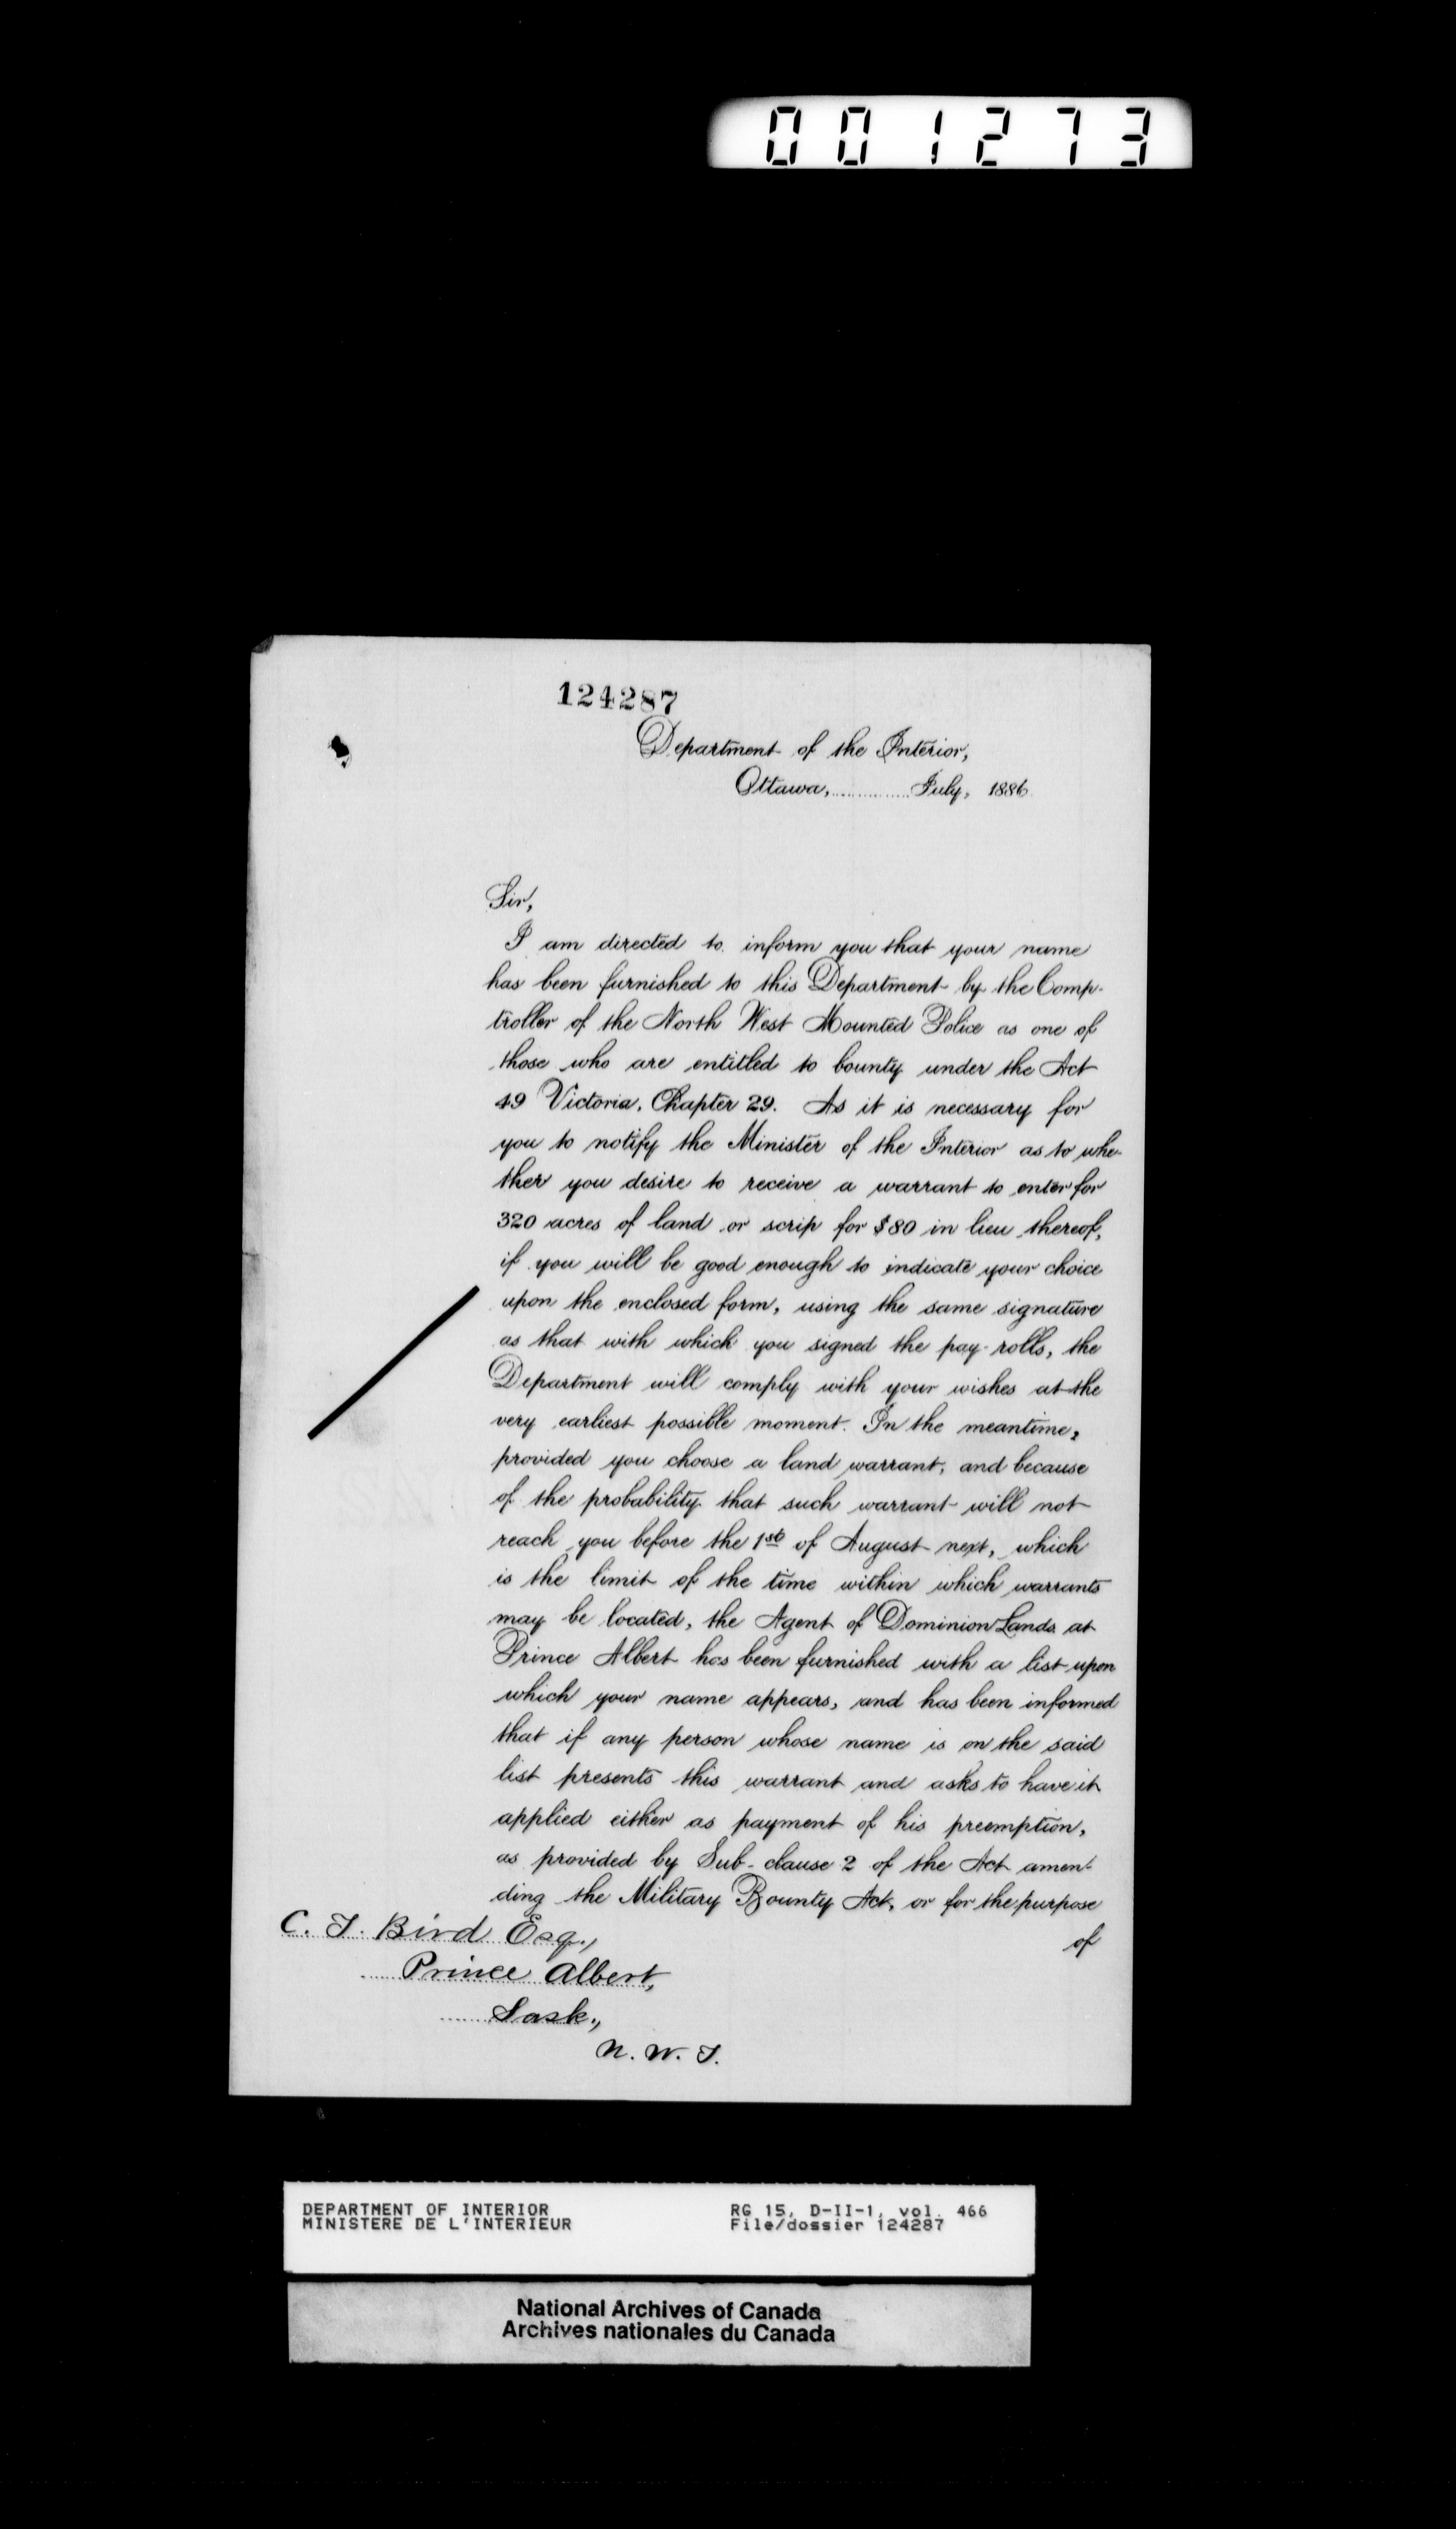 001273
124287
Department of the Interior,
Ottawa, ............ July, 1886
Sir,
I am directed to inform you that your name
has been furnished to this Department by the Comp-
troller of the North West Mounted Police as one of
those who are entitled to bounty under the Act
49 Victoria, Chapter 29. As it is necessary for
you to notify the Minister of the Interior as to whe-
ther you desire to receive a warrant to enter for
320 acres of land or scrip for $80 in lieu thereof,
if you will be good enough to indicate your choice
upon the enclosed form, using the same signature
as that with which you signed the pay-rolls, the
Department will comply with your wishes at the
very earliest possible moment. In the meantime,
provided you choose a land warrant, and because
of the probability that such warrant will not
reach you before the 1st of August next, which
is the limit of the time within which warrants
may be located, the Agent of Dominion Lands at
Prince Albert has been furnished with a list upon
which your name appears, and has been informed
that if any person whose name is on the said
list presents this warrant and asks to have it
applied either as payment of his preemption,
as provided by Sub-clause 2 of the Act amen-
ding the Military Bounty Act, or for the purpose
of
C. T. Bird Esq.,
Prince Albert,
Sask.,
N. W. T.
DEPARTMENT OF INTERIOR RG 15, D-II-1, vol. 466
MINISTERE DE L'INTERIEUR File/dossier 124287
National Archives of Canada
Archives nationales du Canada